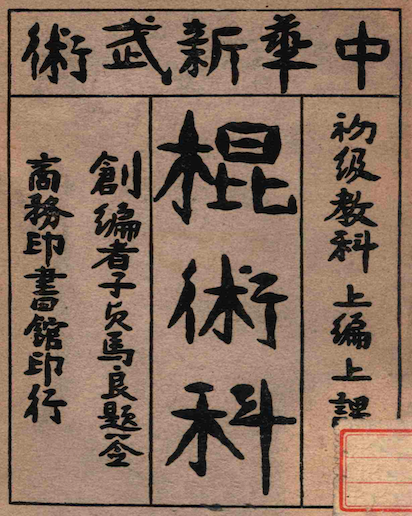 中華新武術
初級教科上編上課
棍術科
創編者子貞馬良題
商務印書館印行